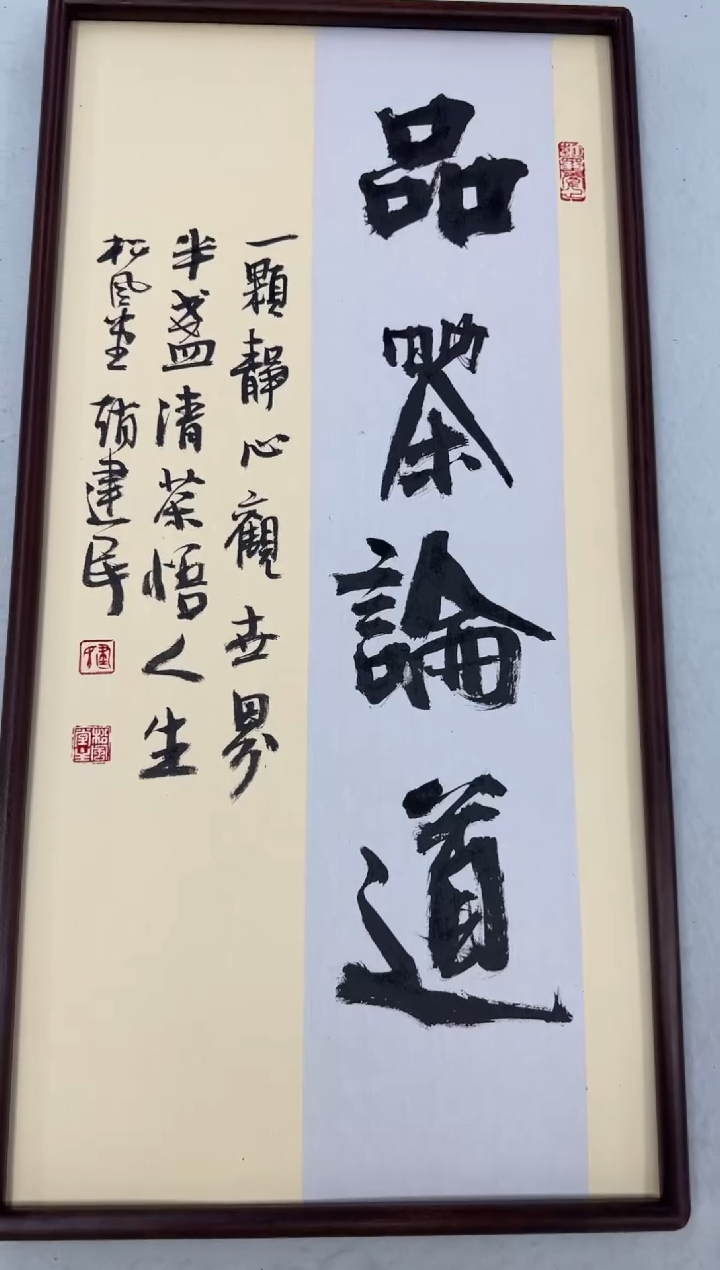 品茶論道
一顆靜心觀世界
半盞清茶悟人生
松風堂 趙建民